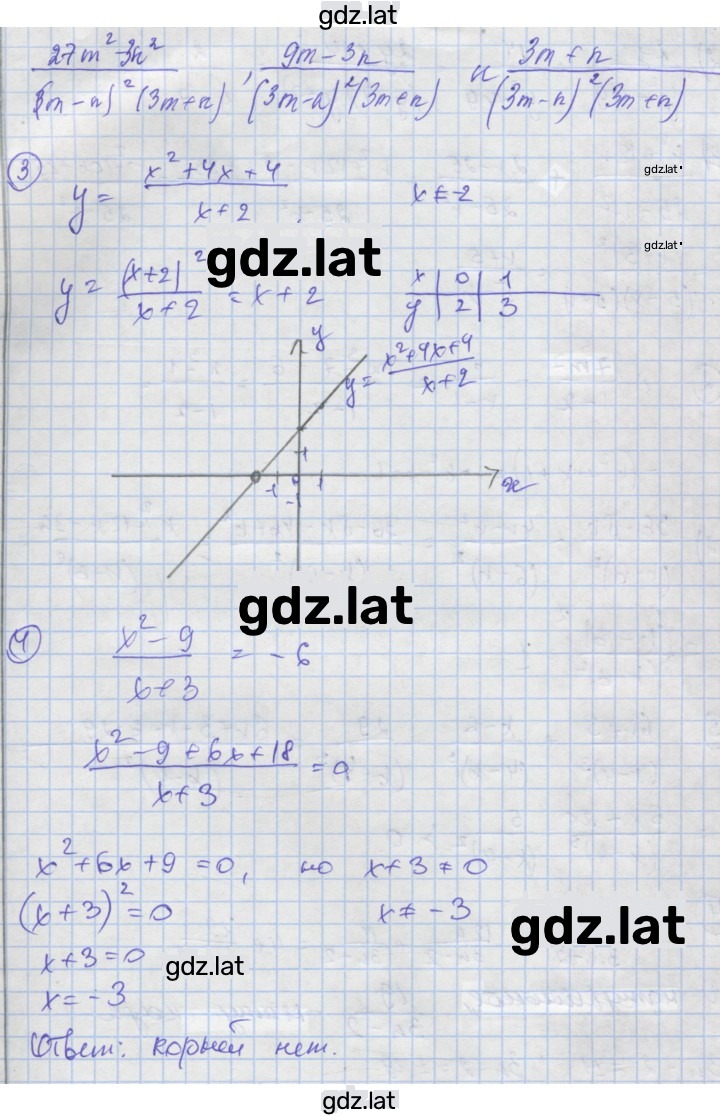 gdz.lat
(27m² - 3n²)/((3m - n)²(3m + n)), (9m - 3n)/((3m - n)²(3m + n)) и (3m + n)/((3m - n)²(3m + n))
③ y = (x² + 4x + 4)/(x + 2) . x ≠ -2
gdz.lat
gdz.lat
gdz.lat
y = (x + 2)²/(x + 2) = x + 2
x | 0 | 1
y | 2 | 3
y
y = (x² + 4x + 4)/(x + 2)
1
-1 0 1 x
-1
gdz.lat
④ (x² - 9)/(x + 3) = -6
(x² - 9 + 6x + 18)/(x + 3) = 0
x² + 6x + 9 = 0, но x + 3 ≠ 0
(x + 3)² = 0 x ≠ -3
gdz.lat
x + 3 = 0
gdz.lat
x = -3
Ответ: корней нет.
gdz.lat